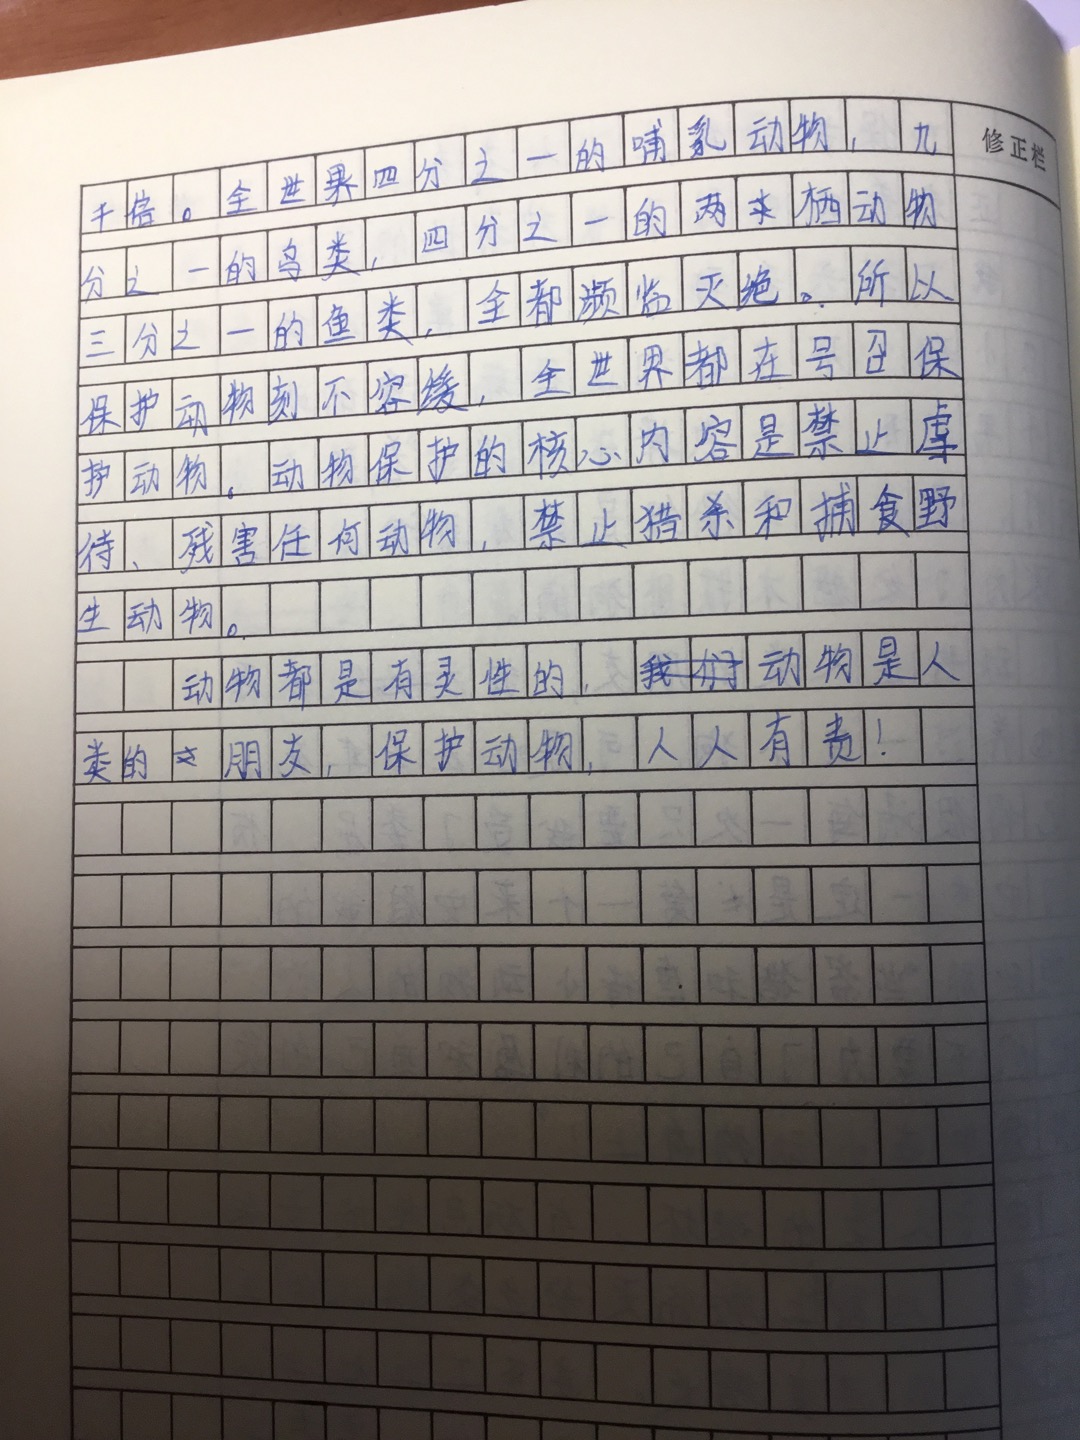 修正栏
千倍。全世界四分之一的哺乳动物，九
分之一的鸟类，四分之一的两求栖动物
三分之一的鱼类，全都濒临灭绝。所以
保护动物刻不容缓，全世界都在号召保
护动物。动物保护的核心内容是禁止虐
待、残害任何动物，禁止猎杀和捕食野
生动物。
动物都是有灵性的，我们动物是人
类的朋友，保护动物，人人有责！